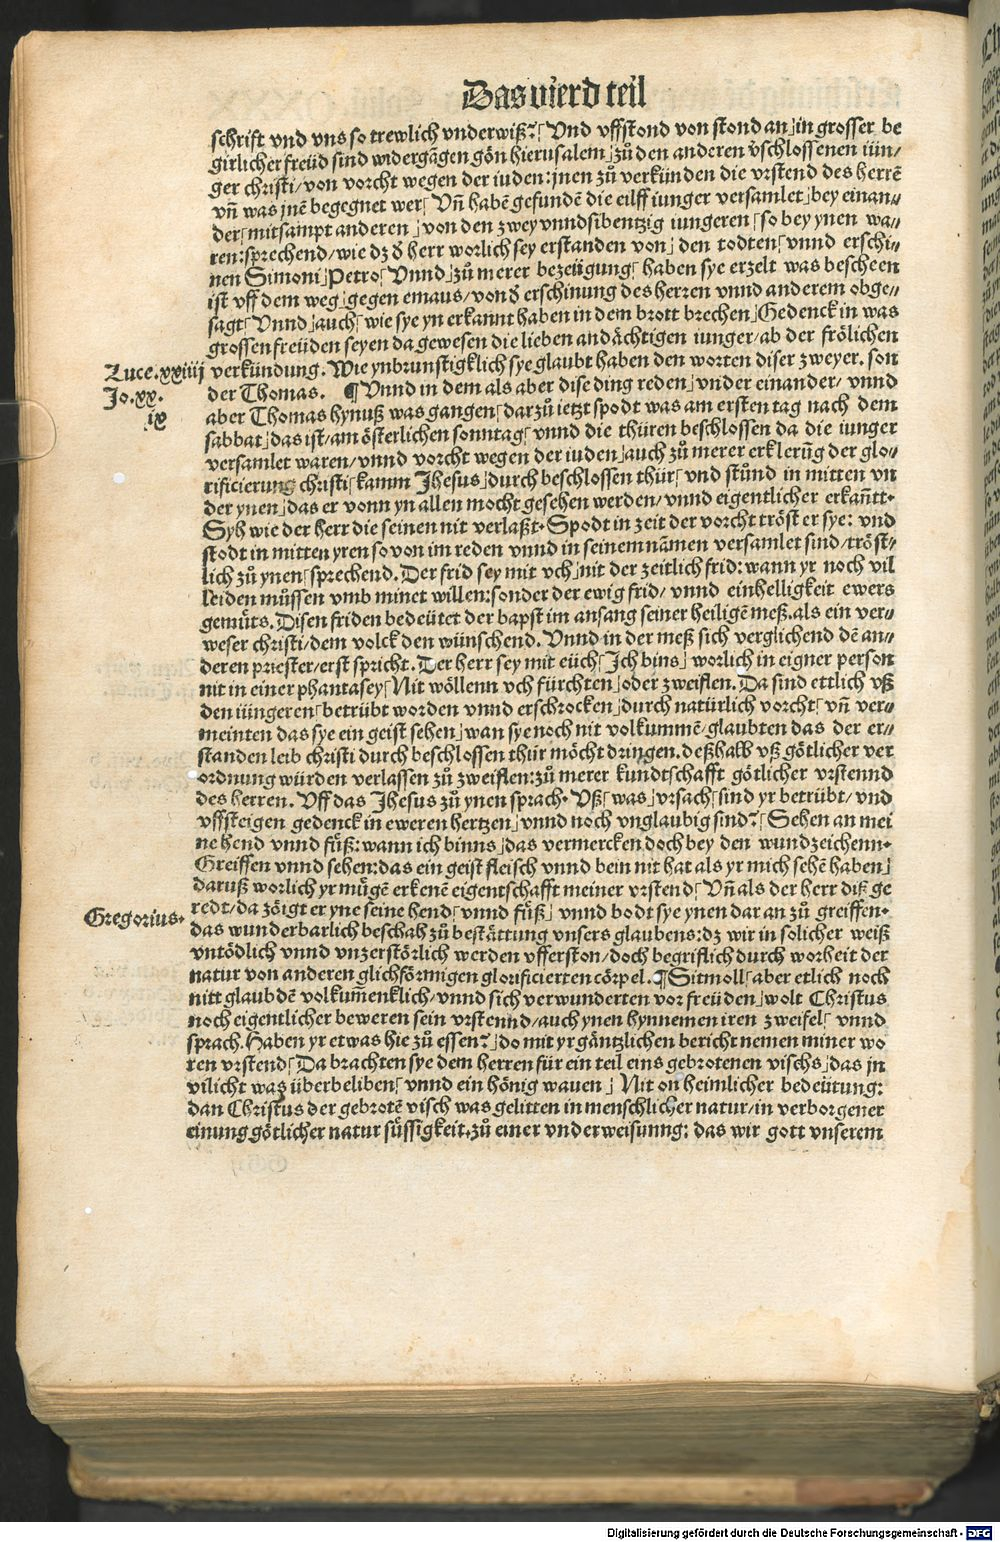 Das vierd teil
schrift vnd vns so trewlich vnderwiß?⌈Vnd vffstond von stond an⌋in grosser be
girlicher freüd sind widergãgen gõn hierusalem⌋zů den anderen v̉schlossenen iün/
ger christi/von vorcht wegen der iuden:jnen zů verkünden die vrstend des herrẽ
vñ was jnẽ begegnet wer⌈Vñ habẽ gefundẽ die eilff iunger versamlet⌋bey einan⸗
der⌈mitsampt anderen⌋von den zwey vnndsibentzig iungeren⌈so bey ynen wa⸗
ren:sprechend/wie dz d̉ herr worlich sey erstanden von⌋den todten⌈vnnd erschi⸗
nen Simoni⌋Petro⌈Vnnd⌋zů merer bezeügung⌈haben sye erzelt was bescheen
ist vff dem weg⌋gegen emaus/von d̉ erschinung des herren vnnd anderem obge⸗
sagt⌈Vnnd⌋auch⌈wie sye yn erkannt haben in dem brott brechen⌋Gedenck in was
grossen freüden seyen da gewesen die lieben andächtigen iunger/ab der frölichen
Luce.xxiiij verkündung. Wie ynbrunstigklich sye glaubt haben den worten diser zweyer. son
Jo.xx. der Thomas. ¶⌈Vnnd in dem als aber dise ding reden⌋vnder einander/vnnd
ix aber Thomas hynuß was gangen⌈darzů ietzt spodt was am ersten tag nach dem
sabbat⌋das ist/am österlichen sonntag⌈vnnd die thüren beschlossen da die iunger
versamlet waren/vnnd vorcht wegen der iuden⌋auch zů merer erklerũg der glo⸗
rificierung christi⌈kamm Jhesus⌋durch beschlossen thür⌈vnd stůnd in mitten vn
der ynen⌋das er vonn yn allen mocht gesehen werden/vnnd eigentlicher erkañtt.
Syh wie der herr die seinen nit verlaßt. Spodt in zeit der vorcht tröst er sye: vnd
stodt in mitten yren so von im reden vnnd in seinem nãmen versamlet sind/tröst⸗
lich zů ynen⌈sprechend. Der frid sey mit vch⌋nit der zeitlich frid:wann yr noch vil
leiden müssen vmb minet willen:sonder der ewig frid/vnnd einhelligkeit ewers
gemüts. Disen friden bedeütet der bapst im anfang seiner heiligẽ meß.als ein ver⸗
weser christi/dem volck den wünschend. Vnnd in der meß sich verglichend dẽ an⸗
deren priester/erst spricht. Der herr sey mit eüch⌈Ich bins⌋worlich in eigner person
nit in einer phantasey⌈Nit wöllenn vch fürchten⌋oder zweiflen. Da sind ettlich vß
den iüngeren⌈betrübt worden vnnd erschrocken⌋durch natürlich vorcht⌈vñ ver⸗
meinten das sye ein geist sehen⌋wan sye noch nit volkummẽ/glaubten das der er⸗
standen leib christi durch beschlossen thür möcht dringen. deßhalb vß götlicher ver
ordnung würden verlassen zů zweiflen:zů merer kundtschafft götlicher vrstennd
des herren. Vff das Jhesus zů ynen sprach. Vß⌈was⌋vrsach⌈sind yr betrübt/vnd
vffsteigen gedenck in eweren hertzen⌋vnnd noch vnglaubig sind?⌈Sehen an mei
ne hend vnnd füß:wann ich binns⌋das vermercken doch bey den wundzeichenn.
Greiffen vnnd sehen:das ein geist fleisch vnnd bein nit hat als yr mich sehẽ haben⌋
daruß worlich yr mügẽ erkenẽ eigentschafft meiner vrstend⌈Vñ als der herr diß ge
Gregorius. redt/da zöigt er yne seine hend⌈vnnd füß⌋vnnd bodt sye ynen dar an zů greiffen.
das wunderbarlich beschah zů bestättung vnsers glaubens:dz wir in solicher weiß
vntödlich vnnd vnzerstörlich werden vfferston/doch begriflich durch worheit der
natur von anderen glichförmigen glorificierten cörpel. ¶⌈Sitmoll⌋aber etlich noch
nitt glaubdẽ volkum̃enklich/vnnd sich verwunderten vor freüden⌋wolt Christus
noch eigentlicher beweren sein vrstennd/auch ynen hynnemen iren zweifel⌈vnnd
sprach. Haben yr etwas hie zů essen?⌋do mit yr gäntzlichen bericht nemen miner wo
ren vrstend⌈Da brachten sye dem herren für ein teil eins gebrotenen vischs⌋das jn
vilicht was überbeliben⌈vnnd ein hönig wauen⌋Nit on heimlicher bedeütung:
dan Christus der gebrotẽ visch was gelitten in menschlicher natur/in verborgener
einung götlicher natur süssigkeit.zů einer vnderweisunng: das wir gott vnserem
Digitalisierung gefördert durch die Deutsche Forschungsgemeinschaft - DFG